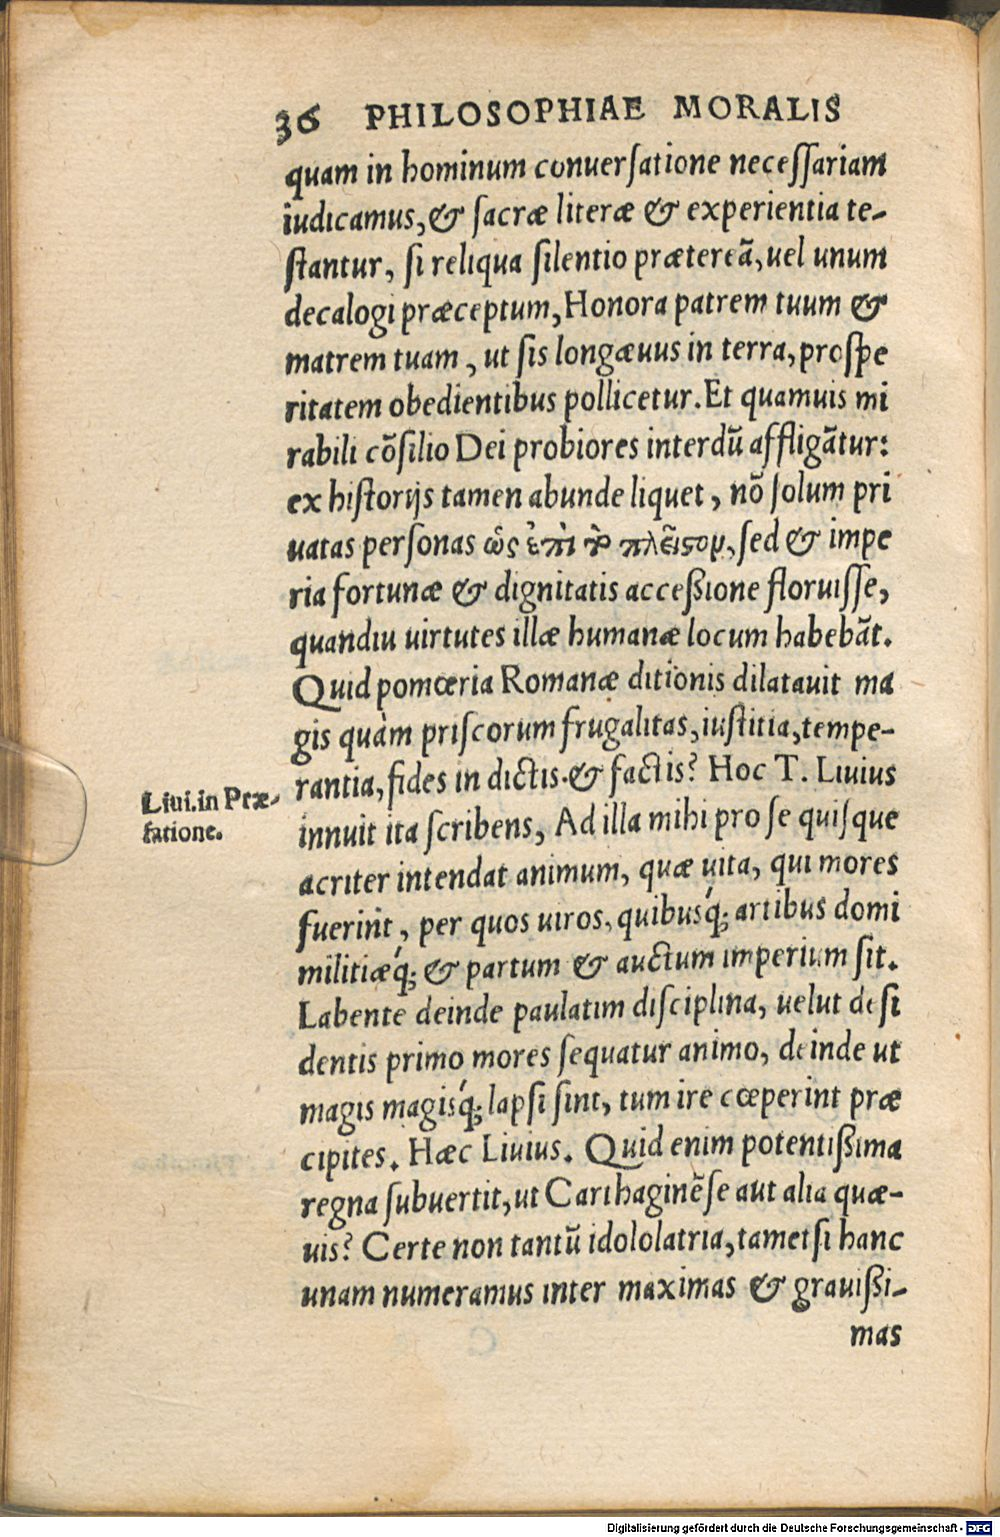 36 PHILOSOPHIAE MORALIS
quam in hominum conuerſatione neceſſariam
iudicamus, & ſacræ literæ & experientia te-
ſtantur, ſi reliqua ſilentio prætereā, uel unum
decalogi præceptum, Honora patrem tuum &
matrem tuam, ut ſis longæuus in terra, proſpe
ritatem obedientibus pollicetur. Et quamuis mi
rabili cōſilio Dei probiores interdū affligātur:
ex hiſtorijs tamen abunde liquet, nō ſolum pri
uatas perſonas ὡς ἐπὶ τὸ πλεῖστον, ſed & impe
ria fortunæ & dignitatis acceßione floruiſſe,
quandiu uirtutes illæ humanæ locum habebāt.
Quid pomœria Romanæ ditionis dilatauit ma
gis quàm priſcorum frugalitas, iuſtitia, tempe-
rantia, fides in dictis & factis? Hoc T. Liuius
Liui. in Præ-
fatione.
innuit ita ſcribens, Ad illa mihi pro ſe quiſque
acriter intendat animum, quæ uita, qui mores
fuerint, per quos uiros, quibusq́; artibus domi
militiæq́; & partum & auctum imperium ſit.
Labente deinde paulatim diſciplina, uelut deſi
dentis primo mores ſequatur animo, deinde ut
magis magisq́; lapſi ſint, tum ire cœperint præ
cipites. Hæc Liuius. Quid enim potentißima
regna ſubuertit, ut Carthaginēſe aut alia quæ-
uis? Certe non tantū idololatria, tametſi hanc
unam numeramus inter maximas & grauißi-
mas
Digitalisierung gefördert durch die Deutsche Forschungsgemeinschaft - DFG